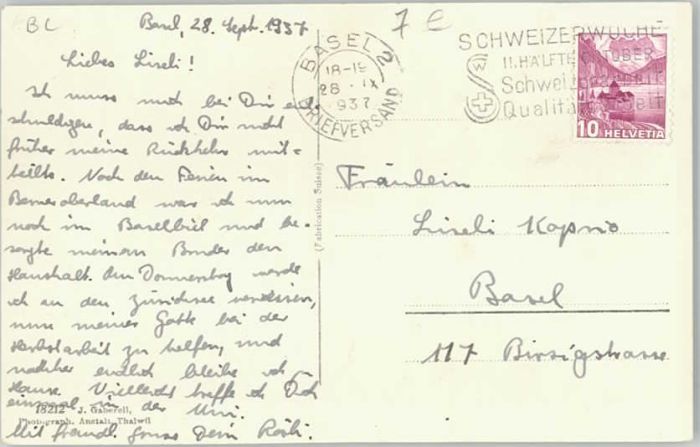 BL
Basel, 28. Sept. 1937
7 €
Liebes Liseli!
Ich muss mich bei Dir ent-
schuldigen, dass ich Dir nicht
früher meine Rückkehr mit-
teilte. Nach den Ferien im
Berneroberland war ich nun
noch im Baselbiet und be-
sorgte meinem Bruder den
Haushalt. Am Donnerstag werde
ich an den Zürichsee verreisen,
um meiner Gotte bei der
Herbstarbeit zu helfen, und
nachher endlich bleibe ich
Hause. Vielleicht treffe ich Dich
einmal in der Uni.
Mit freundl. Gruss Dein Röbi.
18212 J. Gaberell,
Photograph. Anstalt Thalwil
(Fabrication Suisse)
BASEL 2
18-19
28. IX
1937
BRIEFVERSAND
SCHWEIZERWOCHE
II. HÄLFTE OKTOBER
Schweizer
Qualität
10 HELVETIA
Fräulein
Liseli Kaprio
Basel
117 Birsigstrasse